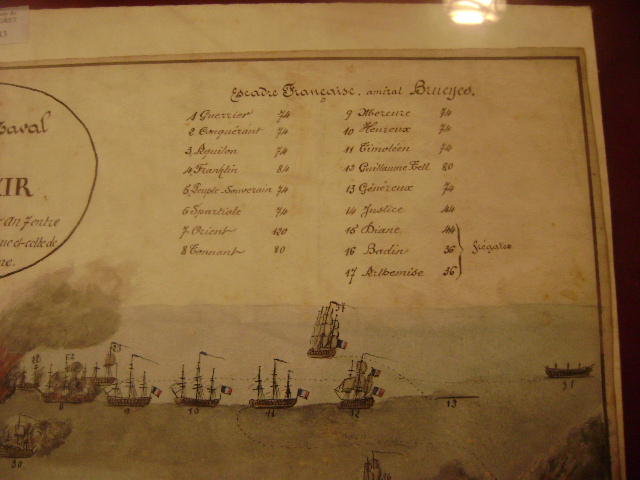 Escadre Française. amiral Brueyes.
1 Guerrier 74
2 Conquérant 74
3 Aquilon 74
4 Franklin 84
5 Peuple-Souverain 74
6 Spartiate 74
7 Orient 120
8 Tonnant 80
9 Mercure 74
10 Heureux 74
11 Timoléon 74
13 Guillaume Tell 80
13 Généreux 74
14 Justice 44
15 Diane 44
16 Badin 36
17 Arthemise 36
frégates
aval
KIR
entre
et celle de
ne.
9
10
11
12
13
30